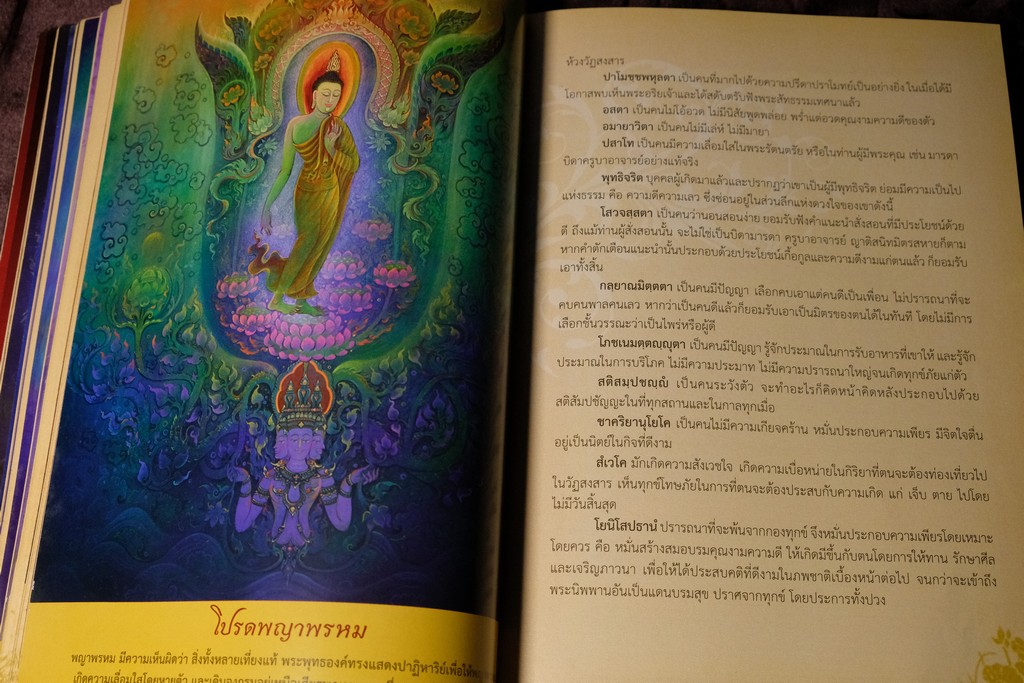 โปรดพญาพรหม
พญาพรหม มีความเห็นผิดว่า สิ่งทั้งหลายเที่ยงแท้ พระพุทธองค์ทรงแสดงปาฏิหาริย์เพื่อให้
เกิดความเลื่อมใสโดยหายตัว และเดินจงกรมอยู่เหนือ
ห้วงวัฏสงสาร
ปาโมชฺชพหุลตา เป็นคนที่มากไปด้วยความปรีดาปราโมทย์เป็นอย่างยิ่ง ในเมื่อได้มี
โอกาสพบเห็นพระอริยเจ้าและได้สดับตรับฟังพระสัทธรรมเทศนาแล้ว
อสตา เป็นคนไม่โอ้อวด ไม่มีนิสัยพูดพล่อย พร่ำแต่อวดคุณงามความดีของตัว
อมายาวิตา เป็นคนไม่มีเล่ห์ ไม่มีมายา
ปสาโท เป็นคนมีความเลื่อมใสในพระรัตนตรัย หรือในท่านผู้มีพระคุณ เช่น มารดา
บิดาครูบาอาจารย์อย่างแท้จริง
พุทธิจริต บุคคลผู้เกิดมาแล้วและปรากฏว่าเขาเป็นผู้มีพุทธิจริต ย่อมมีความเป็นไป
แห่งธรรม คือ ความดีความเลว ซึ่งซ่อนอยู่ในส่วนลึกแห่งดวงใจของเขาดังนี้
โสวจสฺสตา เป็นคนว่านอนสอนง่าย ยอมรับฟังคำแนะนำสั่งสอนที่มีประโยชน์ด้วย
ดี ถึงแม้ท่านผู้สั่งสอนนั้น จะไม่ใช่เป็นบิดามารดา ครูบาอาจารย์ ญาติสนิทมิตรสหายก็ตาม
หากคำตักเตือนแนะนำนั้นประกอบด้วยประโยชน์เกื้อกูลและความดีงามแก่ตนแล้ว ก็ยอมรับ
เอาทั้งสิ้น
กลฺยาณมิตฺตตา เป็นคนมีปัญญา เลือกคบเอาแต่คนดีเป็นเพื่อน ไม่ปรารถนาที่จะ
คบคนพาลคนเลว หากว่าเป็นคนดีแล้วก็ยอมรับเอาเป็นมิตรของตนได้ในทันที โดยไม่มีการ
เลือกชั้นวรรณะว่าเป็นไพร่หรือผู้ดี
โภชเนมตฺตญฺญุตา เป็นคนมีปัญญา รู้จักประมาณในการรับอาหารที่เขาให้ และรู้จัก
ประมาณในการบริโภค ไม่มีความประมาท ไม่มีความปรารถนาใหญ่จนเกิดทุกข์ภัยแก่ตัว
สติสมฺปชญฺญํ เป็นคนระวังตัว จะทำอะไรก็คิดหน้าคิดหลังประกอบไปด้วย
สติสัมปชัญญะในที่ทุกสถานและในกาลทุกเมื่อ
ชาคริยานุโยโค เป็นคนไม่มีความเกียจคร้าน หมั่นประกอบความเพียร มีจิตใจตื่น
อยู่เป็นนิตย์ในกิจที่ดีงาม
สํเวโค มักเกิดความสังเวชใจ เกิดความเบื่อหน่ายในกิริยาที่ตนจะต้องท่องเที่ยวไป
ในวัฏสงสาร เห็นทุกข์โทษภัยในการที่ตนจะต้องประสบกับความเกิด แก่ เจ็บ ตาย ไปโดย
ไม่มีวันสิ้นสุด
โยนิโสปธานํ ปรารถนาที่จะพ้นจากกองทุกข์ จึงหมั่นประกอบความเพียรโดยเหมาะ
โดยควร คือ หมั่นสร้างสมอบรมคุณงามความดี ให้เกิดมีขึ้นกับตนโดยการให้ทาน รักษาศีล
และเจริญภาวนา เพื่อให้ได้ประสบคติที่ดีงามในภพชาติเบื้องหน้าต่อไป จนกว่าจะเข้าถึง
พระนิพพานอันเป็นแดนบรมสุข ปราศจากทุกข์ โดยประการทั้งปวง